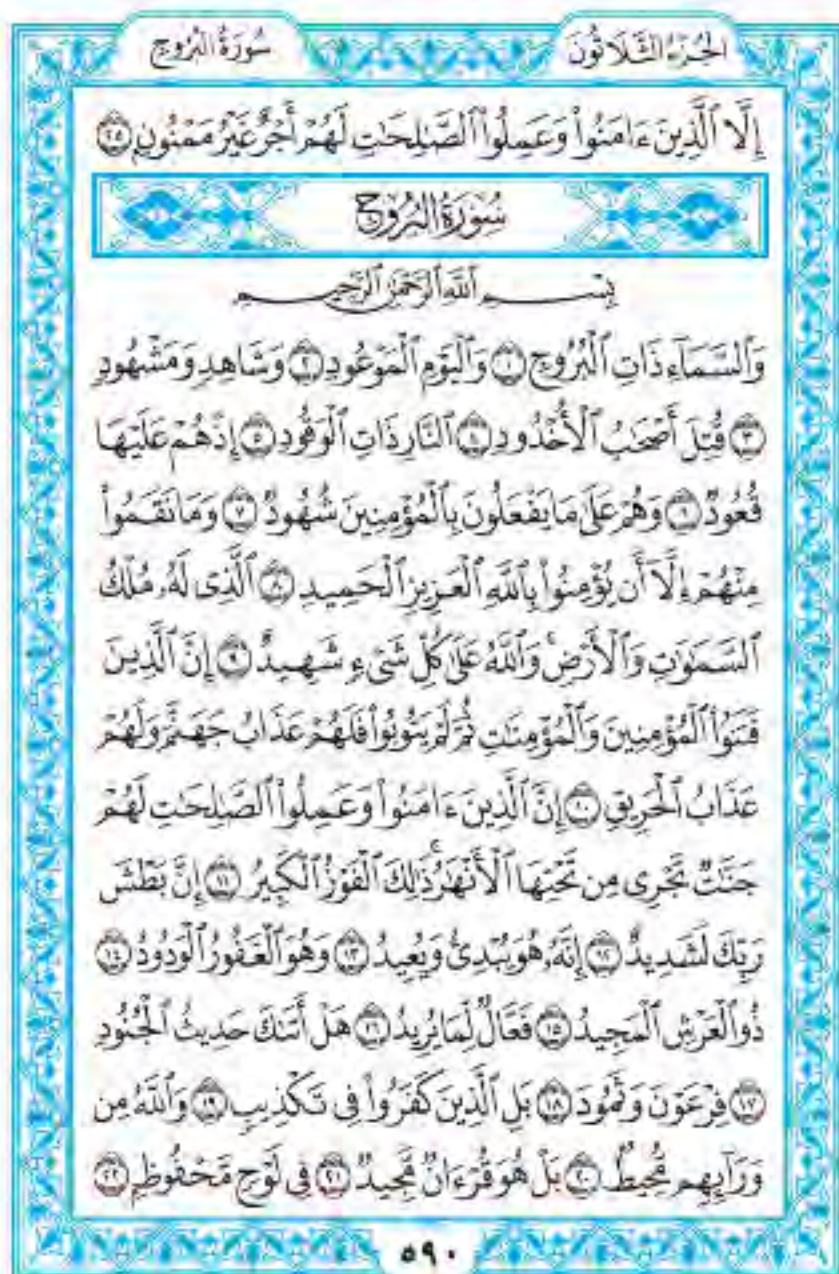 الجُزْءُ الثَّلَاثُونَ سُورَةُ البُرُوج
إِلَّا ٱلَّذِينَ ءَامَنُوا۟ وَعَمِلُوا۟ ٱلصَّٰلِحَٰتِ لَهُمْ أَجْرٌ غَيْرُ مَمْنُونٍۭ ٢٥
سُورَةُ البُرُوجِ
بِسْمِ ٱللَّهِ ٱلرَّحْمَٰنِ ٱلرَّحِيمِ
وَٱلسَّمَآءِ ذَاتِ ٱلْبُرُوجِ ١ وَٱلْيَوْمِ ٱلْمَوْعُودِ ٢ وَشَاهِدٍ وَمَشْهُودٍ
٣ قُتِلَ أَصْحَٰبُ ٱلْأُخْدُودِ ٤ ٱلنَّارِ ذَاتِ ٱلْوَقُودِ ٥ إِذْ هُمْ عَلَيْهَا
قُعُودٌ ٦ وَهُمْ عَلَىٰ مَا يَفْعَلُونَ بِٱلْمُؤْمِنِينَ شُهُودٌ ٧ وَمَا نَقَمُوا۟
مِنْهُمْ إِلَّآ أَن يُؤْمِنُوا۟ بِٱللَّهِ ٱلْعَزِيزِ ٱلْحَمِيدِ ٨ ٱلَّذِى لَهُۥ مُلْكُ
ٱلسَّمَٰوَٰتِ وَٱلْأَرْضِ ۚ وَٱللَّهُ عَلَىٰ كُلِّ شَىْءٍ شَهِيدٌ ٩ إِنَّ ٱلَّذِينَ
فَتَنُوا۟ ٱلْمُؤْمِنِينَ وَٱلْمُؤْمِنَٰتِ ثُمَّ لَمْ يَتُوبُوا۟ فَلَهُمْ عَذَابُ جَهَنَّمَ وَلَهُمْ
عَذَابُ ٱلْحَرِيقِ ١٠ إِنَّ ٱلَّذِينَ ءَامَنُوا۟ وَعَمِلُوا۟ ٱلصَّٰلِحَٰتِ لَهُمْ
جَنَّٰتٌ تَجْرِى مِن تَحْتِهَا ٱلْأَنْهَٰرُ ۚ ذَٰلِكَ ٱلْفَوْزُ ٱلْكَبِيرُ ١١ إِنَّ بَطْشَ
رَبِّكَ لَشَدِيدٌ ١٢ إِنَّهُۥ هُوَ يُبْدِئُ وَيُعِيدُ ١٣ وَهُوَ ٱلْغَفُورُ ٱلْوَدُودُ ١٤
ذُو ٱلْعَرْشِ ٱلْمَجِيدُ ١٥ فَعَّالٌ لِّمَا يُرِيدُ ١٦ هَلْ أَتَىٰكَ حَدِيثُ ٱلْجُنُودِ
١٧ فِرْعَوْنَ وَثَمُودَ ١٨ بَلِ ٱلَّذِينَ كَفَرُوا۟ فِى تَكْذِيبٍ ١٩ وَٱللَّهُ مِن
وَرَآئِهِم مُّحِيطٌۢ ٢٠ بَلْ هُوَ قُرْءَانٌ مَّجِيدٌ ٢١ فِى لَوْحٍ مَّحْفُوظٍۭ ٢٢
٥٩٠